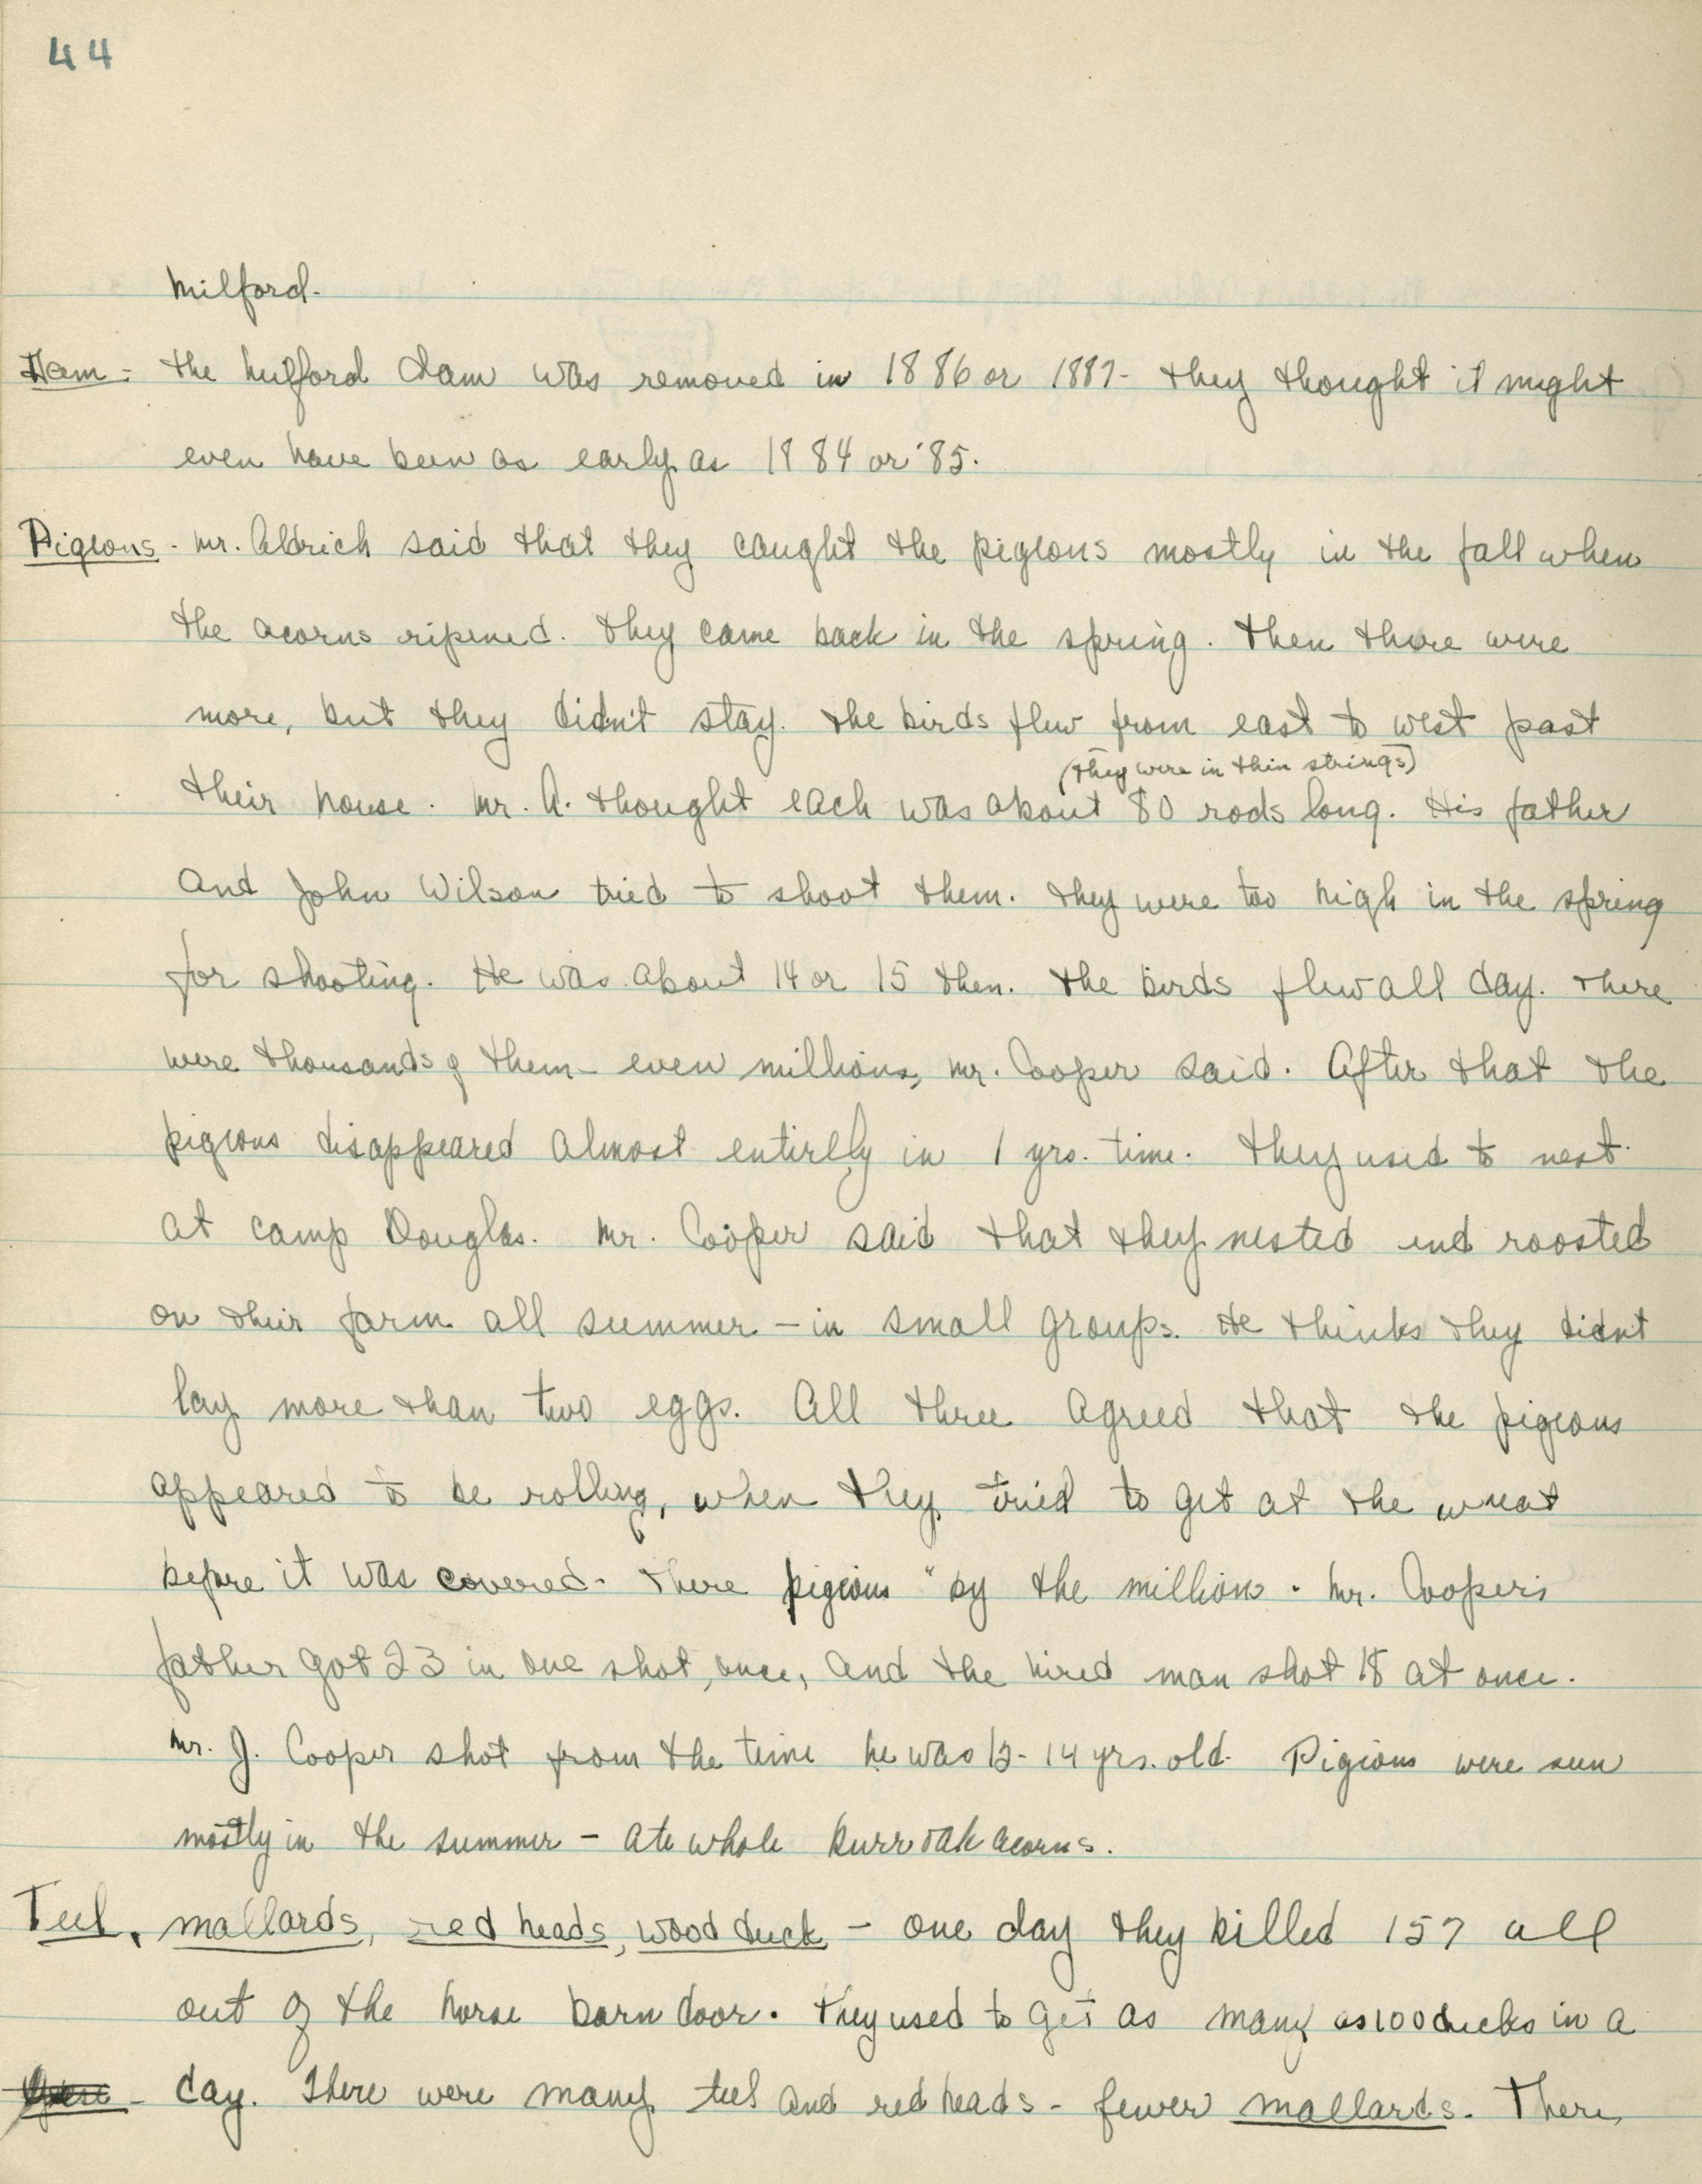 44
Milford.
Dam - The Milford dam was removed in 1886 or 1887 - they thought it might
even have been as early as 1884 or '85.
Pigeons - Mr. Aldrich said that they caught the pigeons mostly in the fall when
the acorns ripened. They came back in the spring. Then there were
more, but they didn't stay. The birds flew from east to west past
(They were in thin strings)
their house. Mr. A. thought each was about 80 rods long. His father
and John Wilson tried to shoot them. They were too high in the spring
for shooting. He was about 14 or 15 then. The birds flew all day. There
were thousands of them - even millions, Mr. Cooper said. After that the
pigeons disappeared almost entirely in 1 yrs. time. They used to nest
at Camp Douglas. Mr. Cooper said that they nested and roosted
on their farm all summer - in small groups. He thinks they didn't
lay more than two eggs. All three agreed that the pigeons
appeared to be rolling, when they tried to get at the wheat
before it was covered. There pigeons "by the million. Mr. Cooper's
father got 23 in one shot, once, and the hired man shot 18 at once.
Mr. J. Cooper shot from the time he was 13-14 yrs. old. Pigeons were seen
mostly in the summer - ate whole burr oak acorns.
Teel, mallards, red heads, wood duck - one day they killed 157 all
out of the horse barn door. They used to get as many as 100 ducks in a
day. There were many teel and red heads - fewer mallards. There